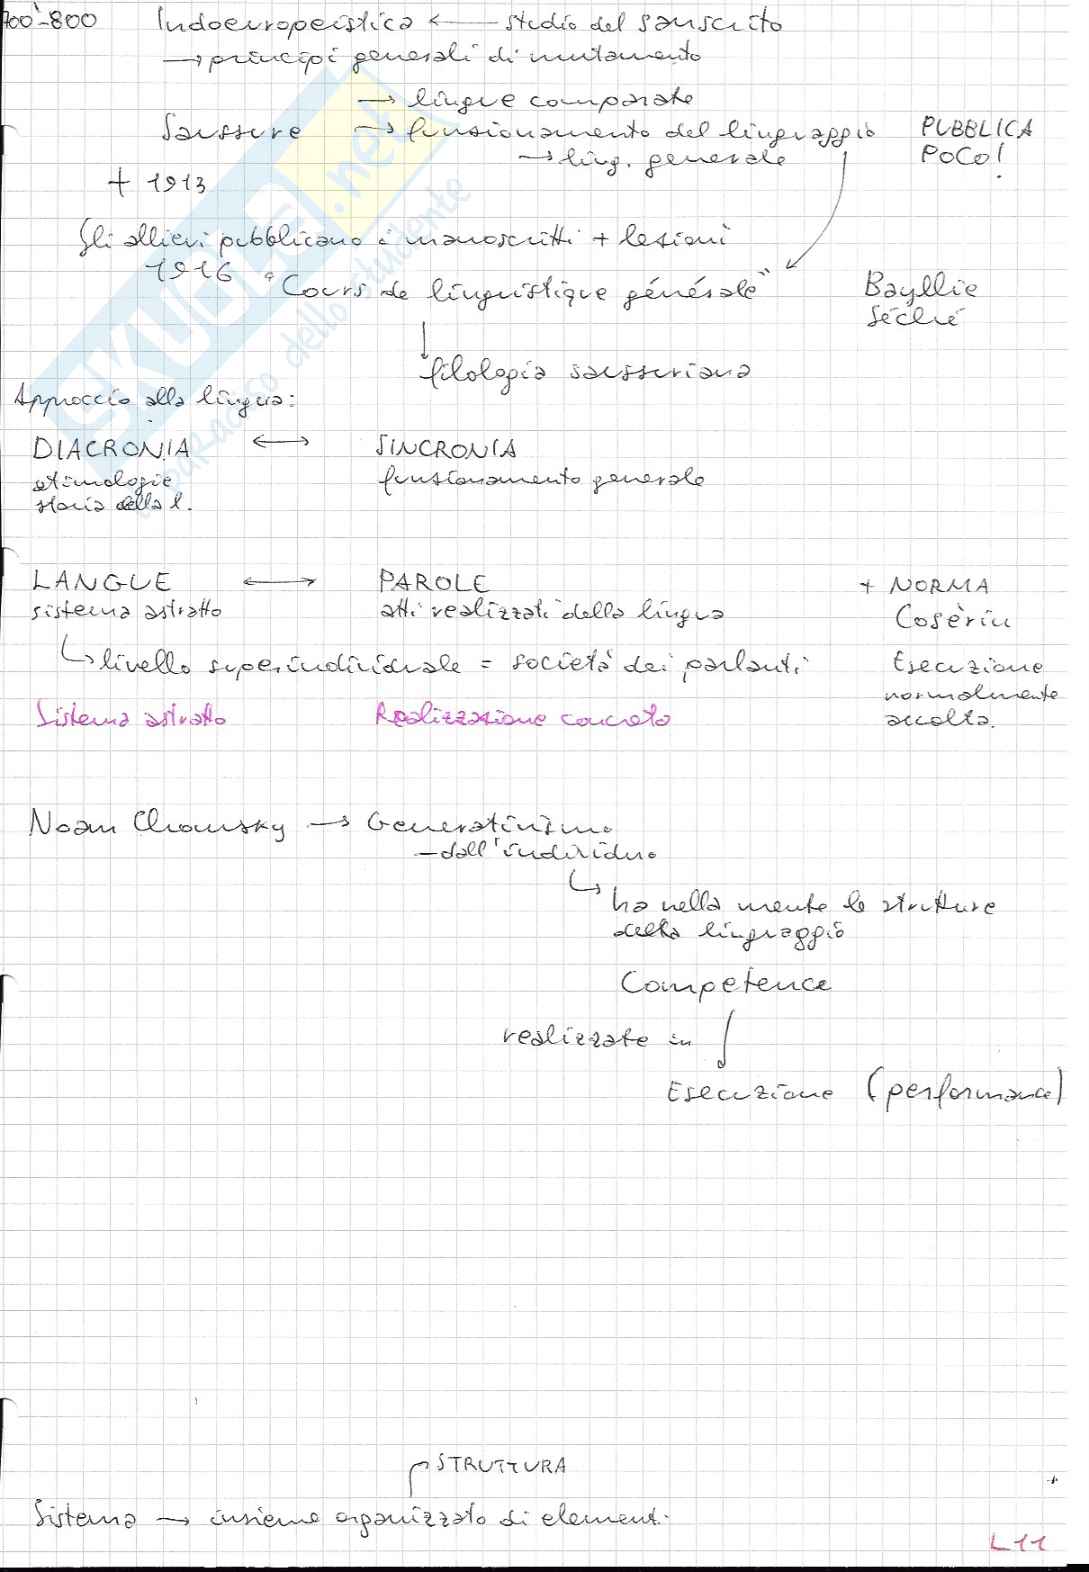 700'-800 Indoeuropeistica ← studio del sanscrito
→ principi generali di mutamento
→ lingue comparate
Saussure → funzionamento del linguaggio PUBBLICA
→ ling. generale POCO!
+ 1913
Gli allievi pubblicano i manoscritti + lezioni
1916 "Cours de linguistique générale" Bayllie
Séché
↓
filologia saussuriana
Approccio alla lingua:
DIACRONIA ↔ SINCRONIA
etimologie funzionamento generale
storia della l.
LANGUE ↔ PAROLE + NORMA
sistema astratto atti realizzati della lingua Cosèriu
↳ livello superindividuale = società dei parlanti Esecuzione
normalmente
Sistema astratto Realizzazione concreta accolta.
Noam Chomsky → Generativismo
- dall'individuo
↳ ha nella mente le strutture
della linguaggio
Competence
realizzate in ↓
Esecuzione (performance)
STRUTTURA
Sistema → insieme organizzato di elementi
L11
SKUOLA.net
il paradiso dello studente